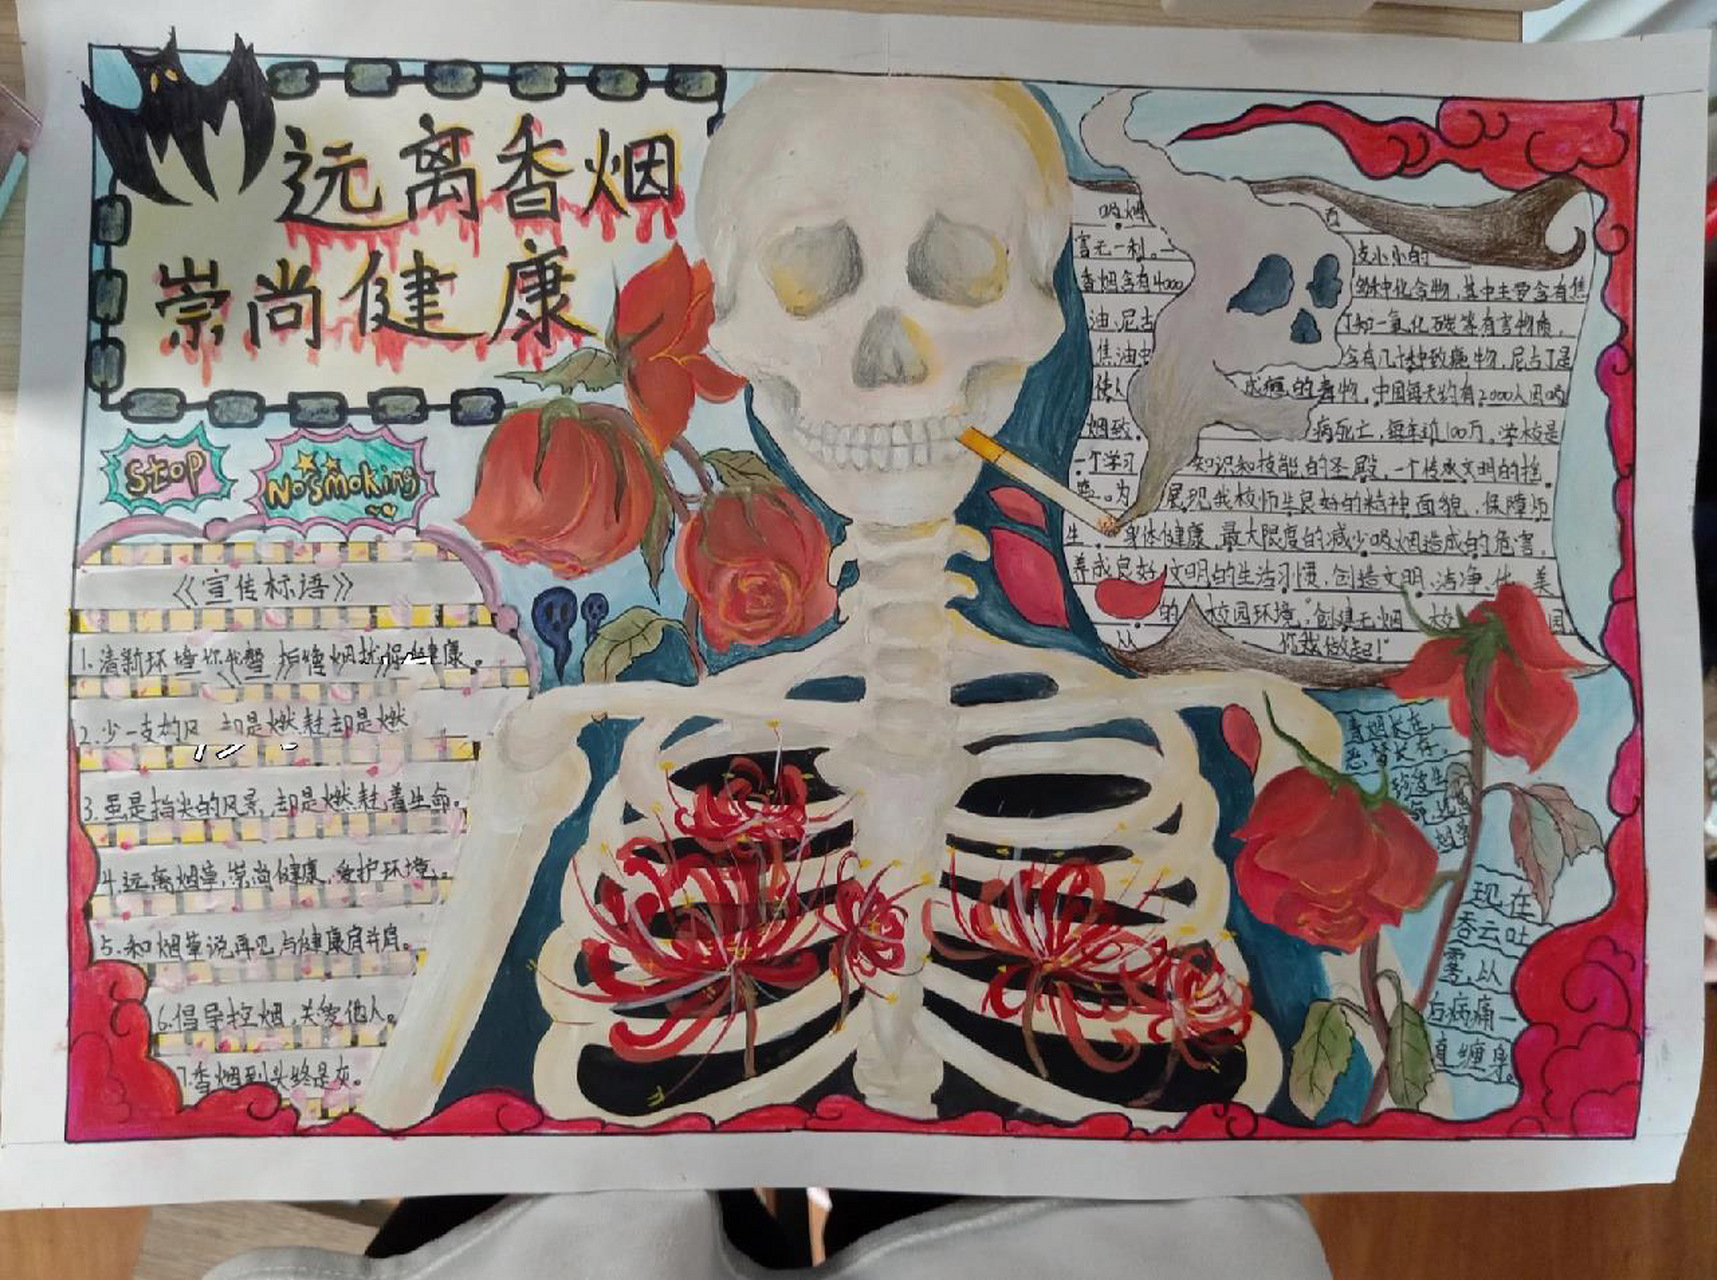 远离香烟
崇尚健康
Stop
No smoking
《宣传标语》
1.清新环境
健康。
2.少一支
却是燃耗却是燃
3.虽是指尖的风景,却是燃耗着生命。
4.远离烟草,崇尚健康,爱护环境。
5.和烟草说再见与健康肩并肩。
6.倡导控烟,关爱他人。
7.香烟到头终是灰。
吸烟 有
害无一利。一 支小小的
香烟含有4000 余种化合物,其中主要含有焦
油、尼古 丁和一氧化碳等有害物质,
焦油中 含有几十种致癌物,尼古丁是
使人 成瘾的毒物,中国每天约有2000人因吸
烟致 病死亡,每年近100万。学校是
一个学习 知识和技能的圣殿,一个传承文明的
为 展现我校师生良好的精神面貌,保障师
生 身体健康,最大限度的减少吸烟造成的危害,
养成良好 文明的生活习惯,创造文明、洁净、优 美
的 校园环境,“创建无烟 校 园,
从 你我做起!”
香烟长在,
愁长存。
珍爱生
命,远离
烟草
现在
吞云吐
雾,从
后病痛一
直缠身。